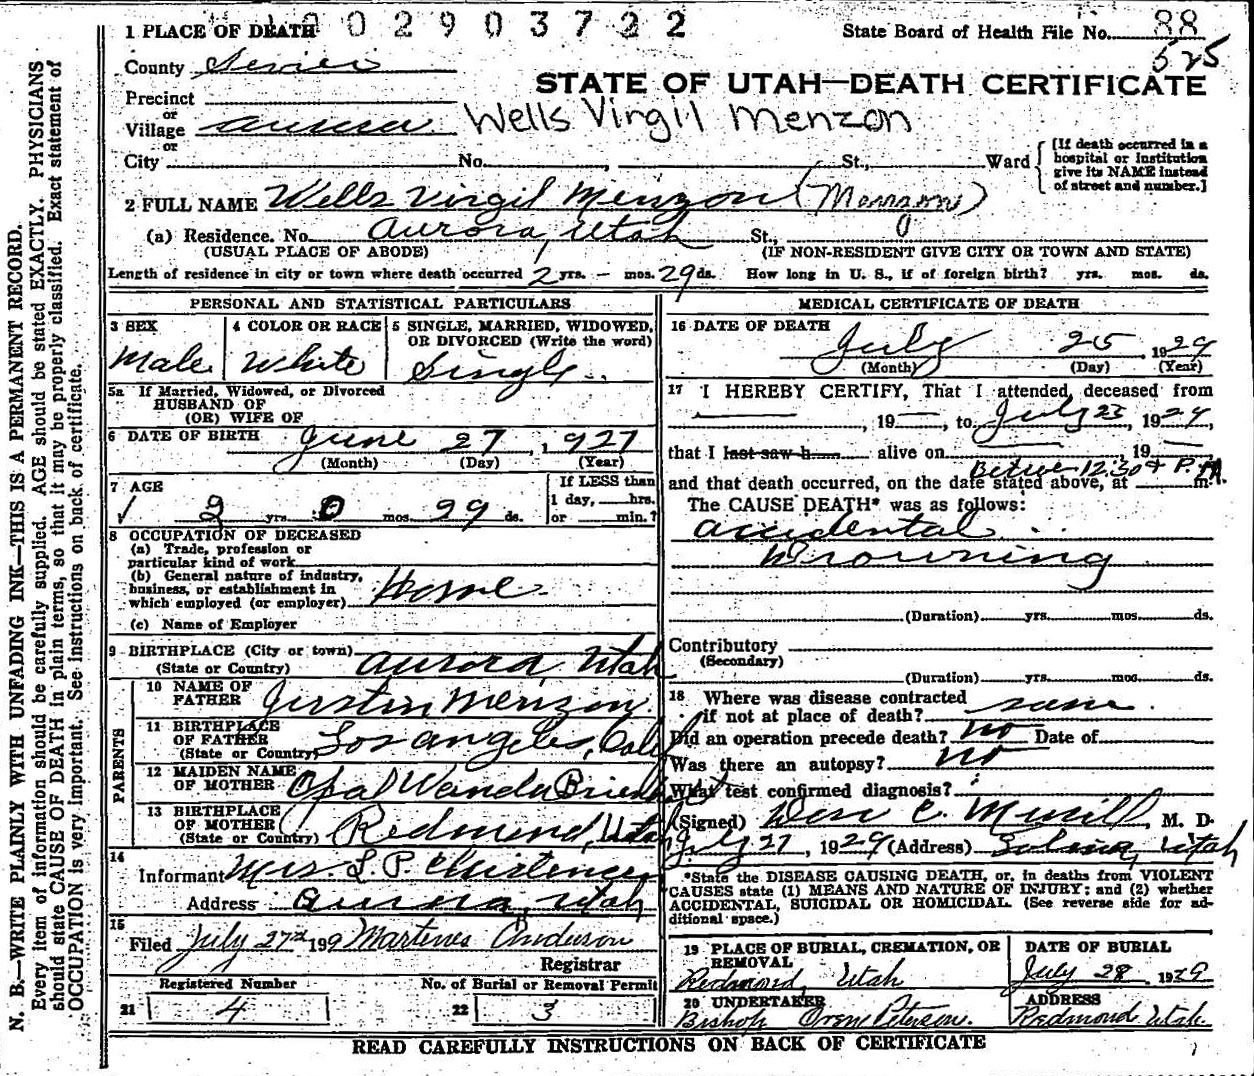 1 PLACE OF DEATH 0 0 2 9 0 3 7 2 2 State Board of Health File No. 88
525
County Sevier
STATE OF UTAH—DEATH CERTIFICATE
Precinct
or
Village Aurora Wells Virgil Menzon
or
City No. , St., Ward
[If death occurred in a hospital or institution give its NAME instead of street and number.]
2 FULL NAME Wells Virgil Menzon (Monzon)
(a) Residence. No. Aurora, Utah St.,
(USUAL PLACE OF ABODE) (IF NON-RESIDENT GIVE CITY OR TOWN AND STATE)
Length of residence in city or town where death occurred 2 yrs. – mos. 29 ds. How long in U. S., if of foreign birth? yrs. mos. ds.
PERSONAL AND STATISTICAL PARTICULARS
3 SEX
Male
4 COLOR OR RACE
White
5 SINGLE, MARRIED, WIDOWED,
OR DIVORCED (Write the word)
Single
5a If Married, Widowed, or Divorced
HUSBAND OF
(OR) WIFE OF
6 DATE OF BIRTH June 27, 1927
(Month) (Day) (Year)
7 AGE
2 yrs. 0 mos. 29 ds.
If LESS than
1 day, hrs.
or min.?
8 OCCUPATION OF DECEASED
(a) Trade, profession or
particular kind of work
(b) General nature of industry,
business, or establishment in
which employed (or employer) Home
(c) Name of Employer
9 BIRTHPLACE (City or town)
(State or Country) Aurora, Utah
PARENTS
10 NAME OF
FATHER Justin Menzon
11 BIRTHPLACE
OF FATHER
(State or Country) Los Angeles, Calif
12 MAIDEN NAME
OF MOTHER Opal Wanda
13 BIRTHPLACE
OF MOTHER
(State or Country) Redmond, Utah
14
Informant Mrs. L. P. Christensen
Address Aurora, Utah
15
Filed July 27th 1929 Anderson
Registrar
Registered Number
21 4
No. of Burial or Removal Permit
22 3
MEDICAL CERTIFICATE OF DEATH
16 DATE OF DEATH
July 25 1929
(Month) (Day) (Year)
17 I HEREBY CERTIFY, That I attended deceased from
, 19 , to July 25 1929,
that I last saw h alive on 19
12:30 + P.M.
and that death occurred, on the date stated above, at m.
The CAUSE DEATH* was as follows:
Accidental
Drowning
(Duration) yrs. mos. ds.
Contributory
(Secondary)
(Duration) yrs. mos. ds.
18 Where was disease contracted
if not at place of death? same
Did an operation precede death? no Date of
Was there an autopsy? no
What test confirmed diagnosis?
(Signed) C. , M. D.
July 27, 1929 (Address) Salina, Utah
*State the DISEASE CAUSING DEATH, or, in deaths from VIOLENT
CAUSES state (1) MEANS AND NATURE OF INJURY; and (2) whether
ACCIDENTAL, SUICIDAL OR HOMICIDAL. (See reverse side for ad-
ditional space.)
19 PLACE OF BURIAL, CREMATION, OR
REMOVAL
Redmond, Utah
DATE OF BURIAL
July 28 1929
20 UNDERTAKER
Bishop Oren Peterson.
ADDRESS
Redmond Utah.
READ CAREFULLY INSTRUCTIONS ON BACK OF CERTIFICATE
N. B.—WRITE PLAINLY WITH UNFADING INK—THIS IS A PERMANENT RECORD.
Every item of information should be carefully supplied. AGE should be stated EXACTLY. PHYSICIANS
should state CAUSE OF DEATH in plain terms, so that it may be properly classified. Exact statement of
OCCUPATION is very important. See instructions on back of certificate.